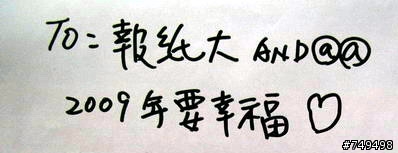 TO：報紙大 AND@@
2009年要幸福♡
#749498